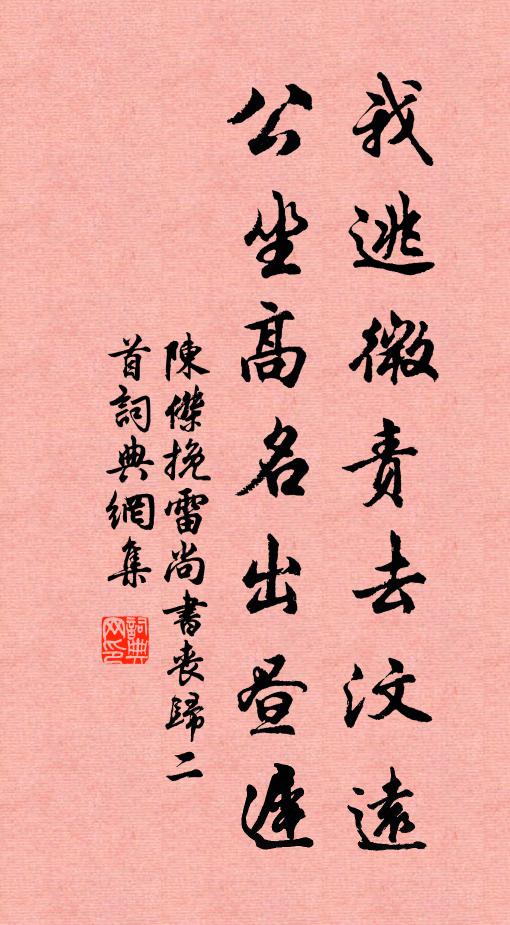 我逃微責去汶遠
公坐高名出晝遲
陳傑挽雷尚書喪歸二
首詞典網集
詞典網印